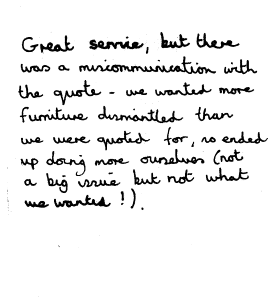 Great service, but there
was a miscommunication with
the quote - we wanted more
furniture dismantled than
we were quoted for, so ended
up doing more ourselves (not
a big issue but not what
we wanted !).